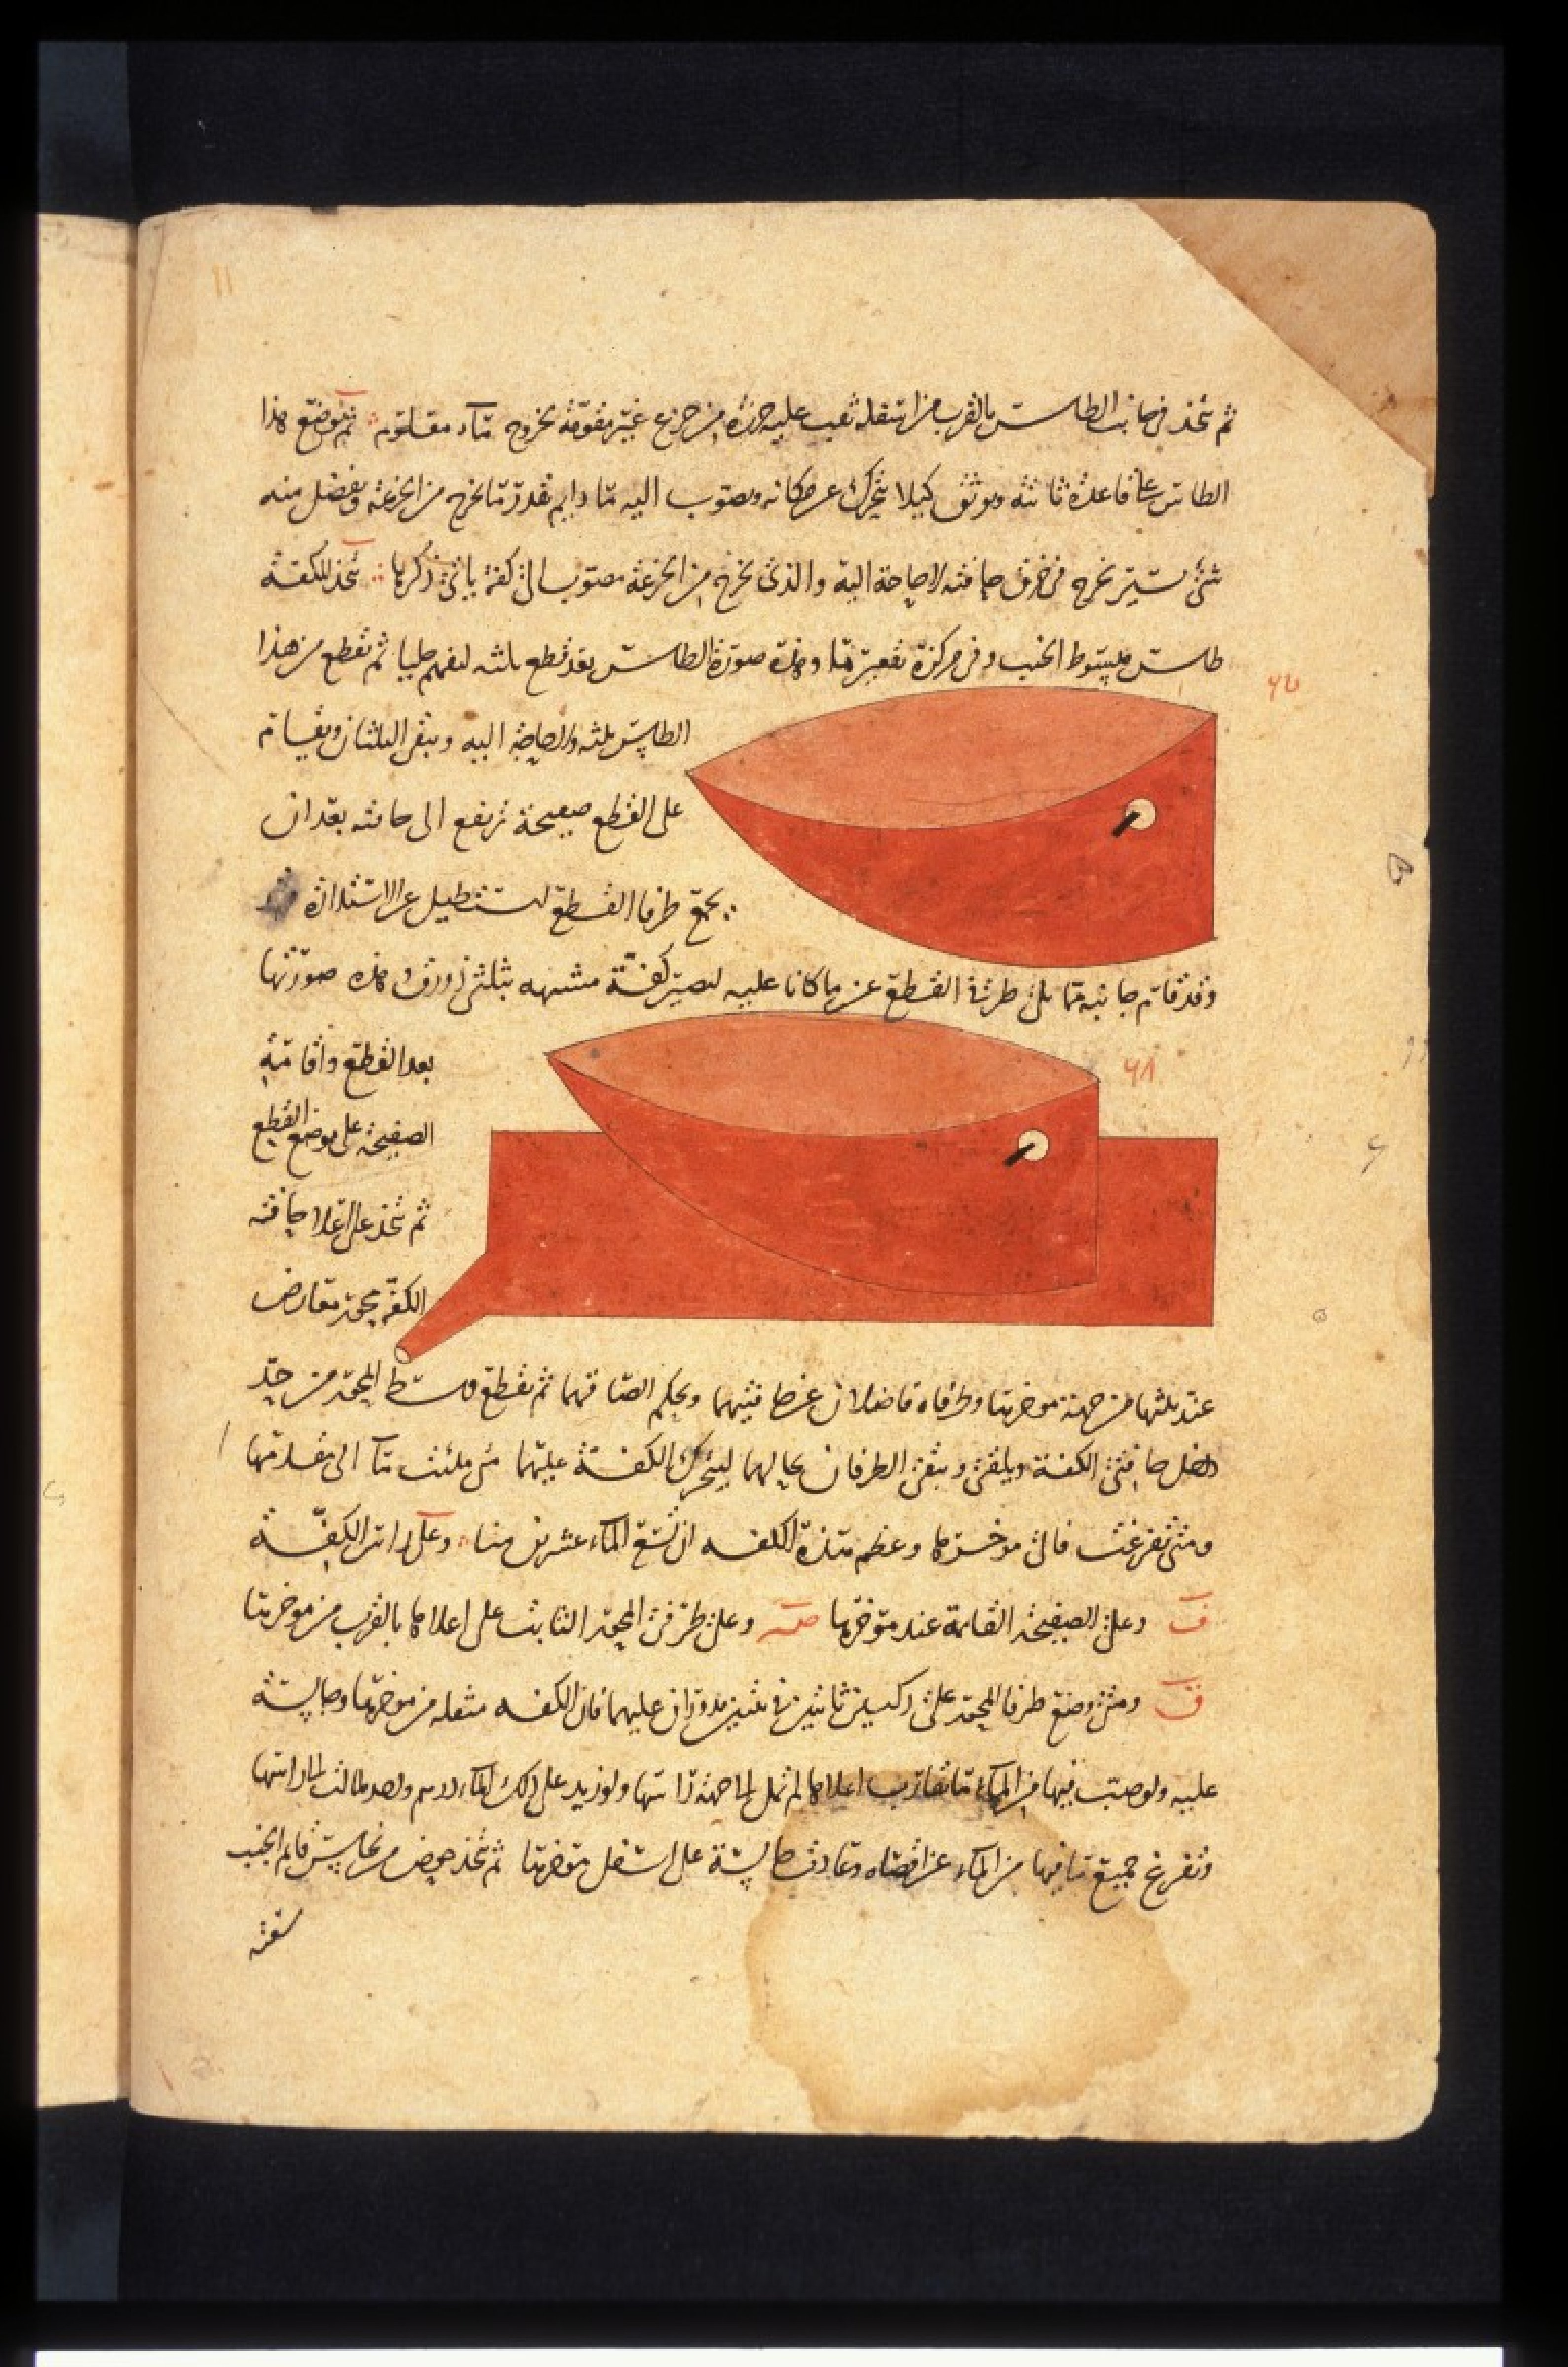 ثم يتخذ في جانب الطاست بالقرب من اسفله ثقب عليه خرزة من جزع غير مثقوبة بخروج ماء معلوم ثم يوضع هذا
الطاس على قاعدة ثابتة ويوثق كيلا يتحرك عن مكانه ويصوب اليه ماء دايم بقدر ما يخرج من الجزعة ويفضل منه
شئ يسير يخرج في خرق حافته لا حاجة اليه والذي يخرج من الجزعة مصوب الى كفة ياتي ذكرها يتخذ للكفة
طاست مبسوط الجنب وفي مركزه تقعير ما وهذه صورة الطاست بعد قطع ثلثه ليفهم جليا ثم يقطع من هذا
الطاس ثلثه ولا حاجة اليه ويبقى الثلثان ويقام
على القطع صفيحة ترتفع الى حافته بعد ان
يجمع طرفا القطع ليستطيل عن الاستدارة
وقد قام جانبه مما يلي طرفي القطع عن ما كانا عليه ليصير كفة مشبهه بثلثي زورق وهذه صورتها
بعد القطع واقامة
الصفيحة على موضع القطع
ثم يتخذ على اعلا حافته
الكفة محور معارض
عند ثلثها من جهة موخرها وطرفاه فاضلان عن حافتيها ويحكم الصاقهما ثم يقطع وسط المحور من حد
داخل حافتي الكفة ويلقى ويبقى الطرفان بحالهما ليتحرك الكفة عليهما متى ملئت مالت الى مقدمها
ومتى تفرغت فالى موخرها وعظم هذه الكفه ان تسع الماء عشرين منا وعلى راس الكفة
ف وعلى الصفيحة القائمة عند موخرها صه وعلى طرفي المحور الثابت على اعلاها بالقرب من موخرها
ق ومتى وضع طرفا المحور على ركنين ثابتين في بيتين يدوران عليهما فان الكفه مثقله من موخرها وجالسة
عليه ولو صب فيها من الماء ما يقارب اعلاها لم تمل الى جهة راسها ولو زيد على ذلك الماء درهم واحد لمالت الى راسها
وتفرغ جميع ما فيها من الماء عن اقصاه وعادت جالسة على اسفل موخرها ثم يتخذ حوض من نحاس قايم الجنب
سعته